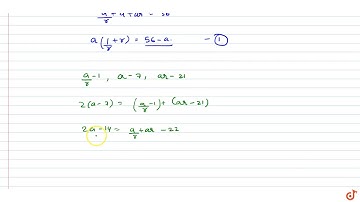 a/r + a + ar = 56
a(1/r + r) = 56 - a. — ①
a/r - 1, a - 7, ar - 21
2(a - 7) = (a/r - 1) + (ar - 21)
2a - 14 = a/r + ar - 22